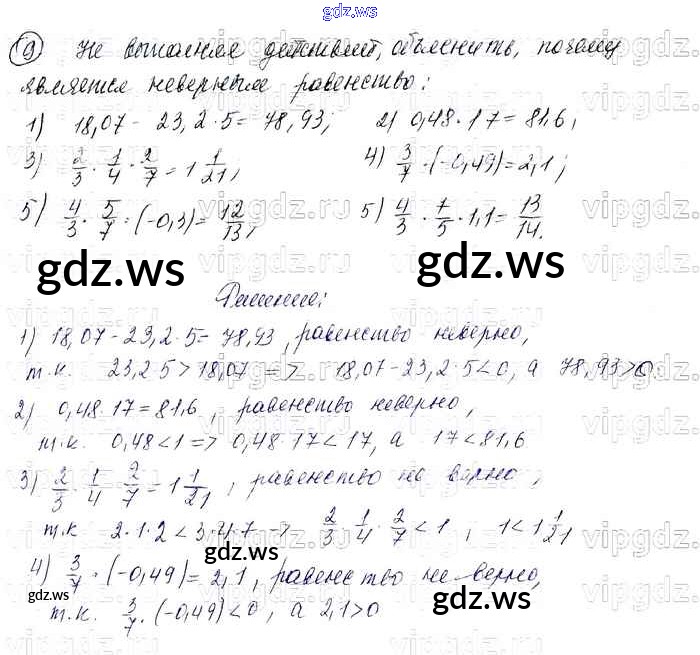 gdz.ws
9 Не выполняя действий, объяснить, почему
является неверным равенство:
1) 18,07 - 23,2·5 = 78,93; 2) 0,48·17 = 81,6;
3) 2/3 · 1/4 · 2/7 = 1 1/21; 4) 3/7 · (-0,49) = 2,1;
5) 4/3 · 5/7 : (-0,3) = 12/13; 5) 4/3 · 1/5 · 1,1 = 13/14.
gdz.ws gdz.ws
Решение:
1) 18,07 - 23,2·5 = 78,93, равенство неверно,
т.к. 23,2·5 > 18,07 => 18,07 - 23,2·5 < 0, а 78,93 > 0.
2) 0,48·17 = 81,6, равенство неверно,
т.к. 0,48 < 1 => 0,48·17 < 17, а 17 < 81,6
3) 2/3 · 1/4 · 2/7 = 1 1/21, равенство не верно,
т.к 2·1·2 < 3·4·7 => 2/3 · 1/4 · 2/7 < 1, 1 < 1 1/21
gdz.ws
4) 3/7 · (-0,49) = 2,1, равенство не верно,
gdz.ws gdz.ws
т.к. 3/7 · (-0,49) < 0, а 2,1 > 0